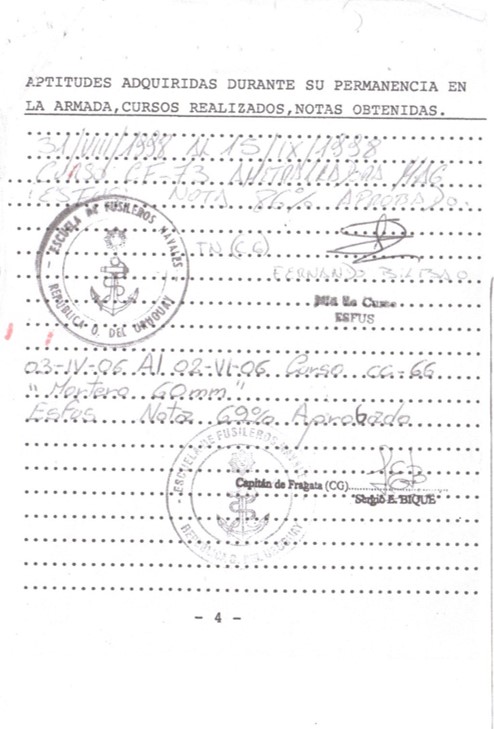 APTITUDES ADQUIRIDAS DURANTE SU PERMANENCIA EN
LA ARMADA,CURSOS REALIZADOS,NOTAS OBTENIDAS.
31/VIII/1998 AL 15/IX/1998
CURSO CF-73 AMETRALLADORA MAG
ESFUS NOTA 86% APROBADO.
ESCUELA DE FUSILEROS NAVALES
REPUBLICA O. DEL URUGUAY
TN (CG)
FERNANDO BILBAO
ESFUS
03-IV-06 Al 02-VI-06 Curso CC-66
"Mortero 60mm"
Esfus Nota 69% Aprobado
ESCUELA DE FUSILEROS NAVALES
REPUBLICA O. DEL URUGUAY
Capitán de Fragata (CG)
"Sergio E. BIQUE"
- 4 -